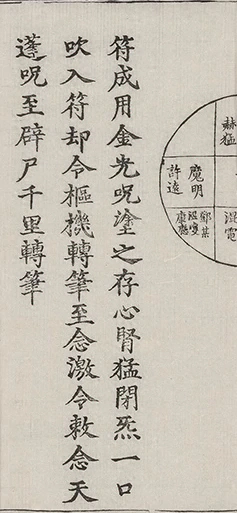 赫猛
魔明
許遠
混電
鄧某
符成用金光呪塗之存心腎猛閉炁一口
吹入符却令樞機轉筆至念激令敕念天
蓬呪至辟尸千里轉筆